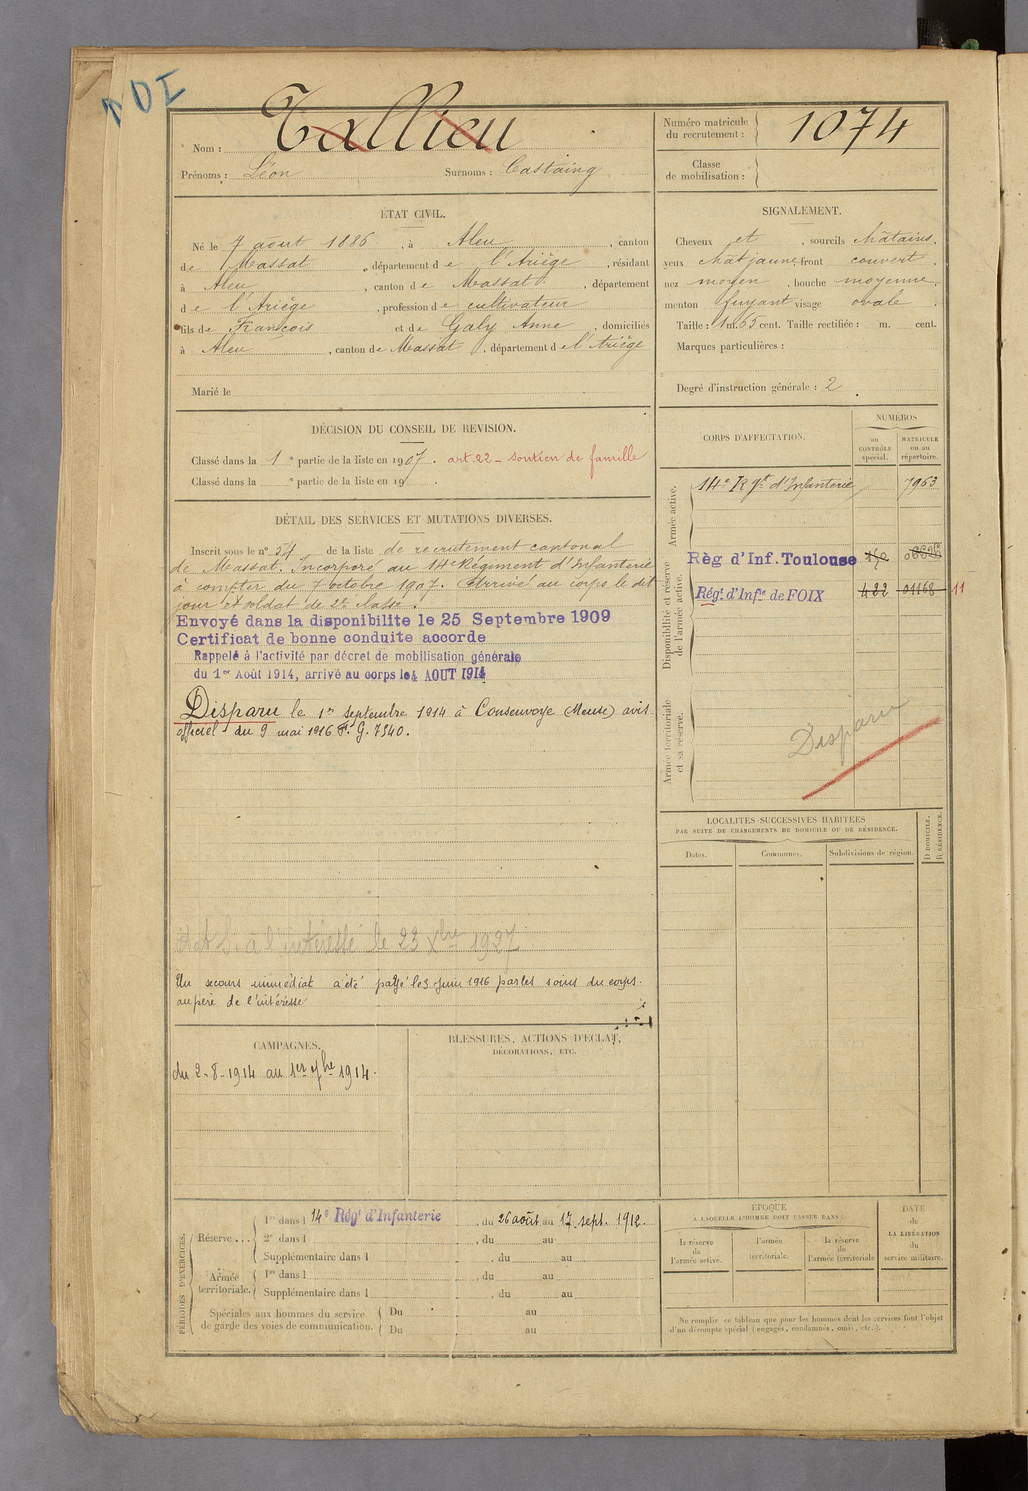 Nom : Tallieu
Prénoms : Léon Surnoms : Castaing
Numéro matricule du recrutement : 1074
Classe de mobilisation :
ÉTAT CIVIL.
Né le 7 août 1886, à Aleu, canton
de Massat, département de l'Ariège, résidant
à Aleu, canton de Massat, département
de l'Ariège, profession de cultivateur
fils de François et de Galy Anne, domiciliés
à Aleu, canton de Massat, département de l'Ariège
Marié le
SIGNALEMENT.
Cheveux et, sourcils châtains.
yeux chat jaune front couvert.
nez moyen, bouche moyenne.
menton fuyant visage ovale.
Taille : 1 m. 65 cent. Taille rectifiée : m. cent.
Marques particulières :
Degré d'instruction générale : 2
DÉCISION DU CONSEIL DE REVISION.
Classé dans la 1e partie de la liste en 1907. art. 22 - soutien de famille
Classé dans la e partie de la liste en 19 .
DÉTAIL DES SERVICES ET MUTATIONS DIVERSES.
Inscrit sous le n° 54 de la liste de recrutement cantonal
de Massat. Incorporé au 14e Régiment d'Infanterie
à compter du 7 octobre 1907. Arrivé au corps le dit
jour et soldat de 2e classe.
Envoyé dans la disponibilite le 25 Septembre 1909
Certificat de bonne conduite accorde
Rappelé à l'activité par décret de mobilisation générale
du 1er Août 1914, arrivé au corps le 4 AOUT 1914
Disparu le 1er septembre 1914 à Consenvoye (Meuse) avis
officiel du 9 mai 1916 F. G. 7340.
à l'intéressé le 23 Xbre 1927
Un secours immédiat a été payé le 3 Juin 1916 par les soins du corps
au père de l'intéressé
CORPS D'AFFECTATION.
NUMÉROS
au CONTRÔLE spécial.
MATRICULE ou au répertoire.
Armée active.
14e Rgt d'Infanterie 7963
Disponibilité et réserve de l'armée active.
Règ d'Inf. Toulouse
Régt. d'Infie de FOIX 422 01168 11
Armée territoriale et sa réserve.
Disparu
LOCALITÉS SUCCESSIVES HABITÉES
PAR SUITE DE CHANGEMENTS DE DOMICILE OU DE RÉSIDENCE.
Dates. Communes. Subdivisions de région. D DOMICILE. R RÉSIDENCE.
CAMPAGNES.
du 2-8-1914 au 1er 7bre 1914.
BLESSURES, ACTIONS D'ÉCLAT,
DÉCORATIONS, ETC.
PÉRIODES D'EXERCICES.
Réserve....
1re dans l 14e Régt d'Infanterie, du 26 août au 17 sept. 1912.
2e dans l , du au
Supplémentaire dans l , du au
Armée territoriale.
1re dans l , du au
Supplémentaire dans l , du au
Spéciales aux hommes du service de garde des voies de communication.
Du au
Du au
ÉPOQUE
A LAQUELLE L'HOMME DOIT PASSER DANS :
la réserve de l'armée active.
l'armée territoriale.
la réserve de l'armée territoriale
DATE de LA LIBÉRATION du service militaire.
Ne remplir ce tableau que pour les hommes dont les services font l'objet
d'un décompte spécial (engagés, condamnés, omis, etc.).